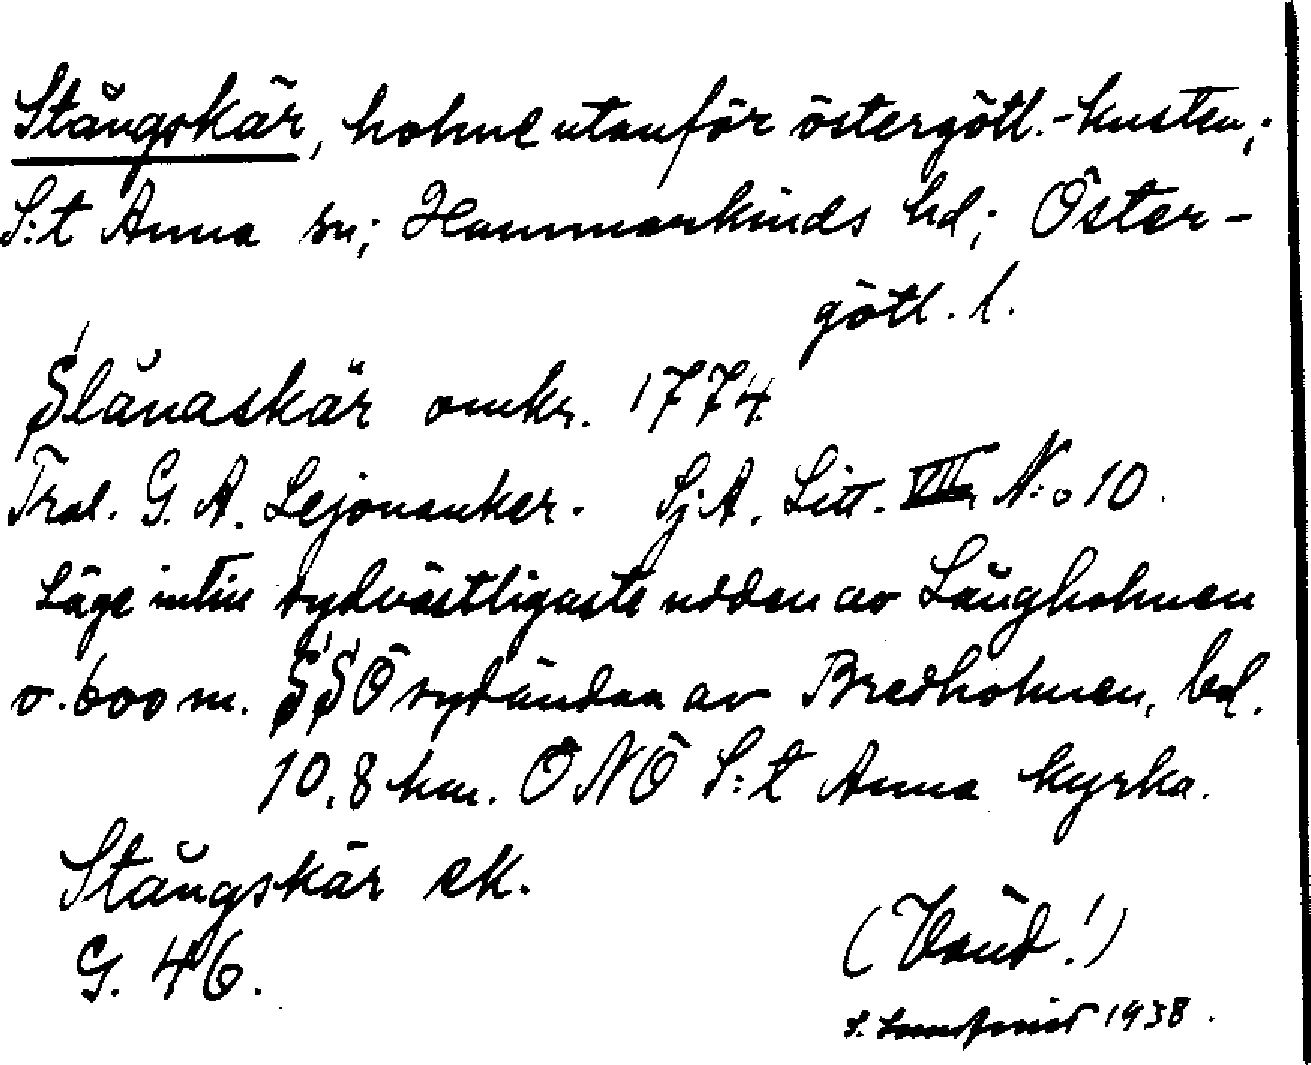 Stångskär, holme utanför östergötl.-kusten,;
S:t Anna sn; Hammarkinds hd; Öster-
götl. l.
Slånaskär omkr. 1774
Tral. G. A. Lejonanker. Sj.A. Litt. VIII N:o 10.
Läge intill sydvästligaste udden av Långholmen
o. 600 m. SSÖ sydändan av Bredholmen, bel.
10,8 km. ONO S:t Anna kyrka.
Stångskär ek.
G. 46.
(Vänd!)
1938.